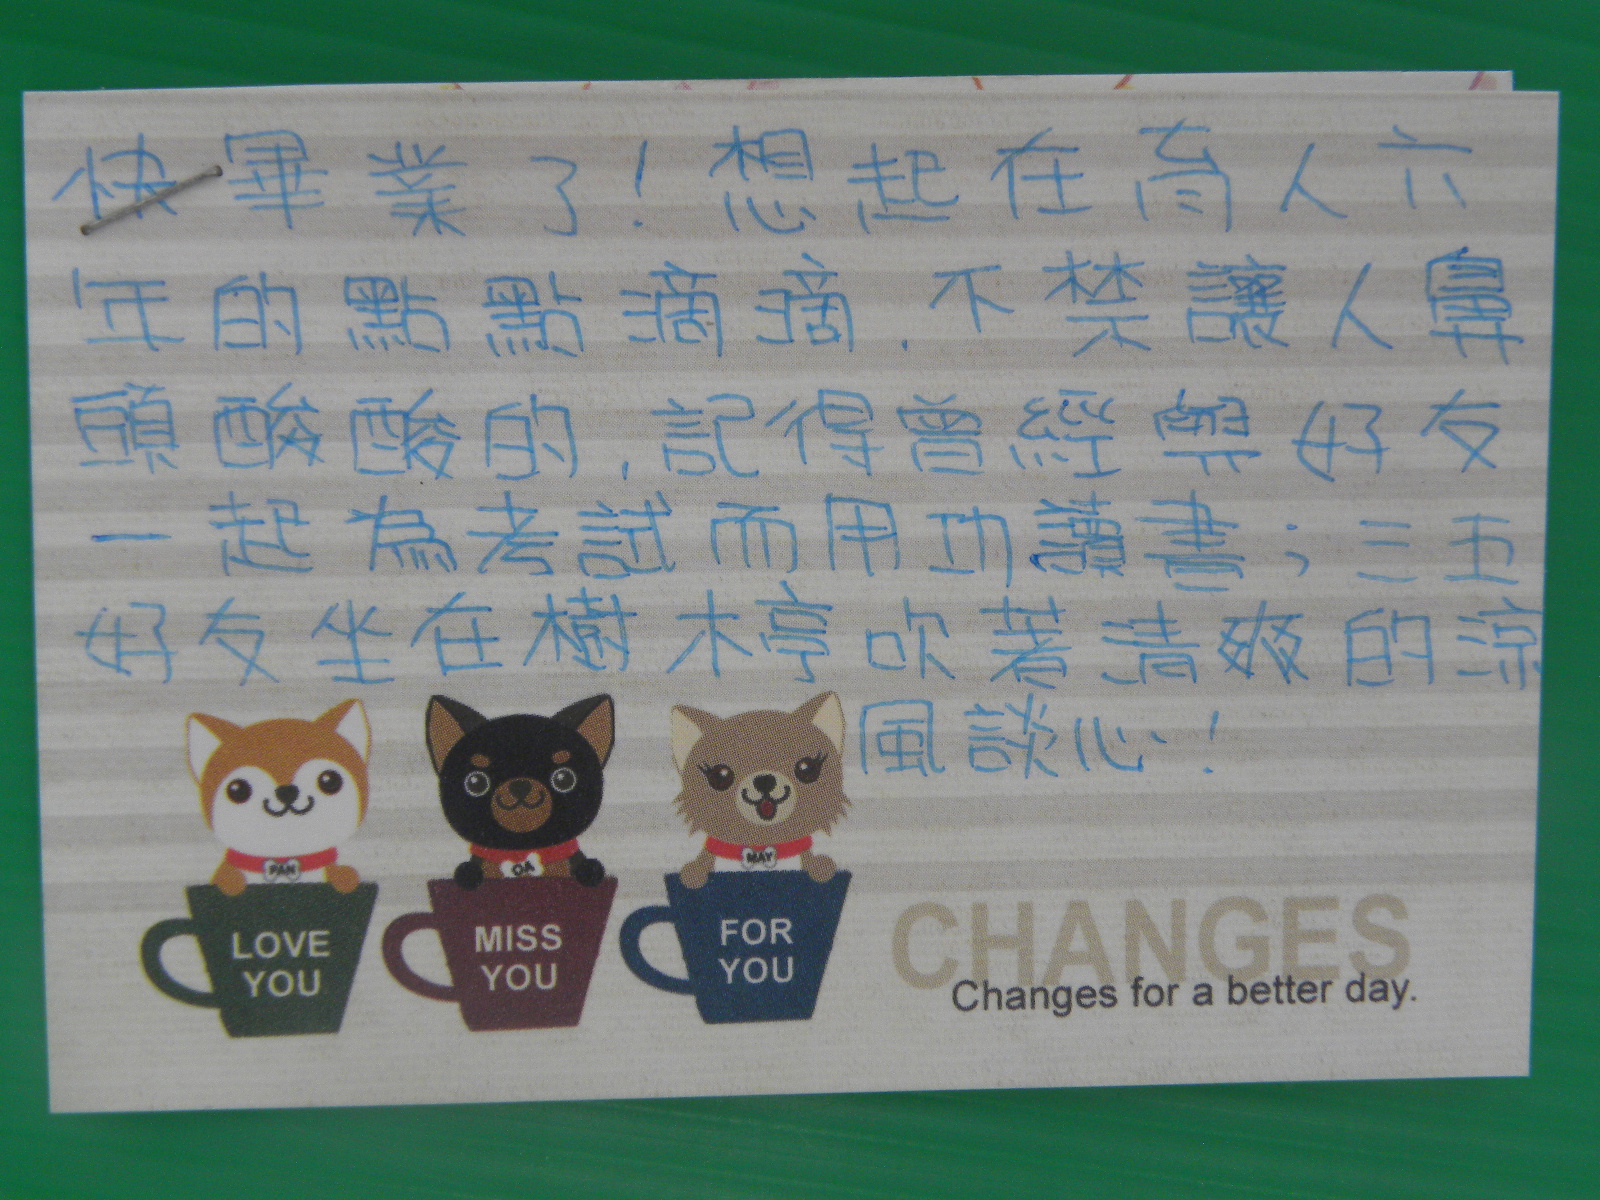 快畢業了!想起在育人六
年的點點滴滴.不禁讓人鼻
頭酸酸的,記得曾經與好友
一起為考試而用功讀書;三五
好友坐在樹木亭吹著清爽的涼
風談心!
PAN
OA
MAY
LOVE
YOU
MISS
YOU
FOR
YOU
CHANGES
Changes for a better day.